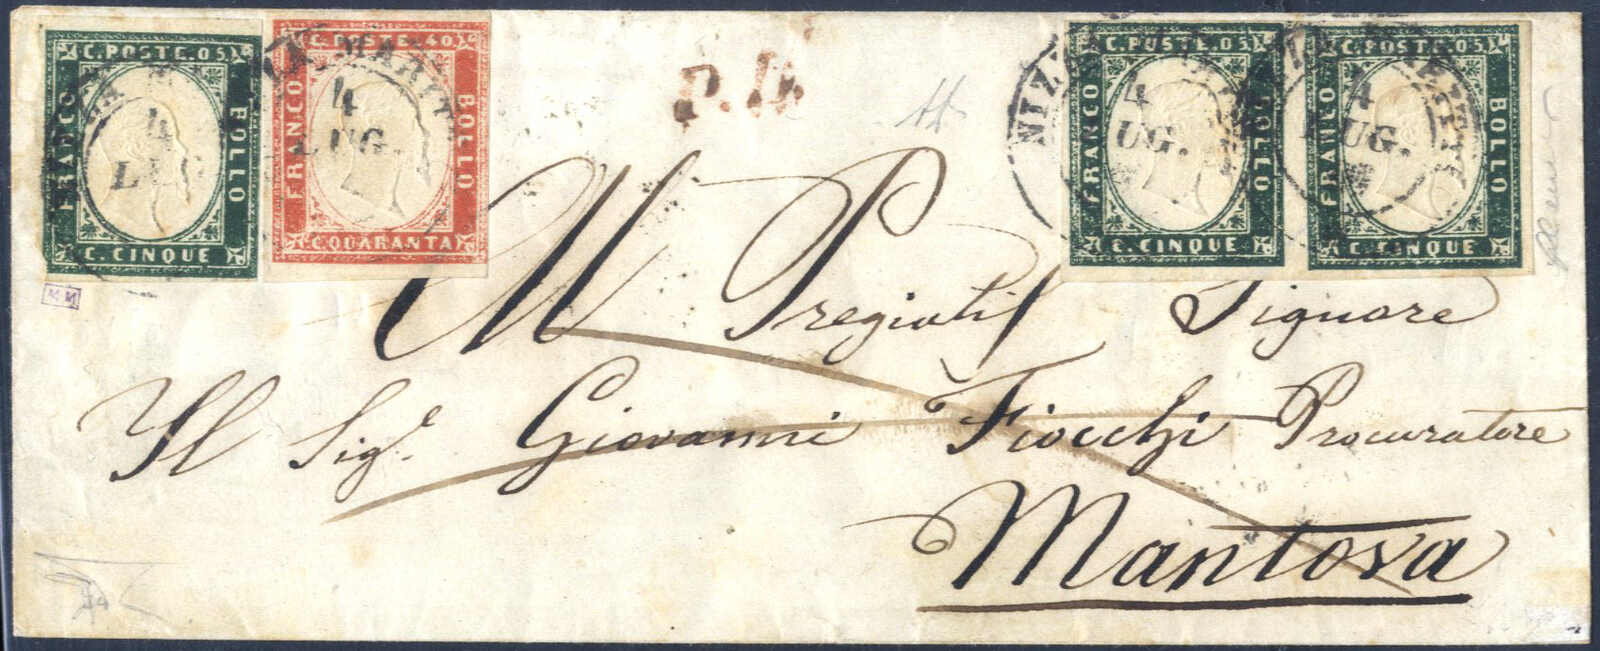 C. POSTE. 05
FRANCO
BOLLO
C. CINQUE
C. POSTE. 40
FRANCO
BOLLO
C. QUARANTA
4
LUG.
P.D.
NIZZA MARITT.
4
LUG.
C. POSTE. 05
FRANCO
BOLLO
C. CINQUE
C. POSTE. 05
FRANCO
BOLLO
C. CINQUE
4
LUG.
Al Pregiatis Signore
Il Sig.e Giovanni Fiocchi Procuratore
Mantova